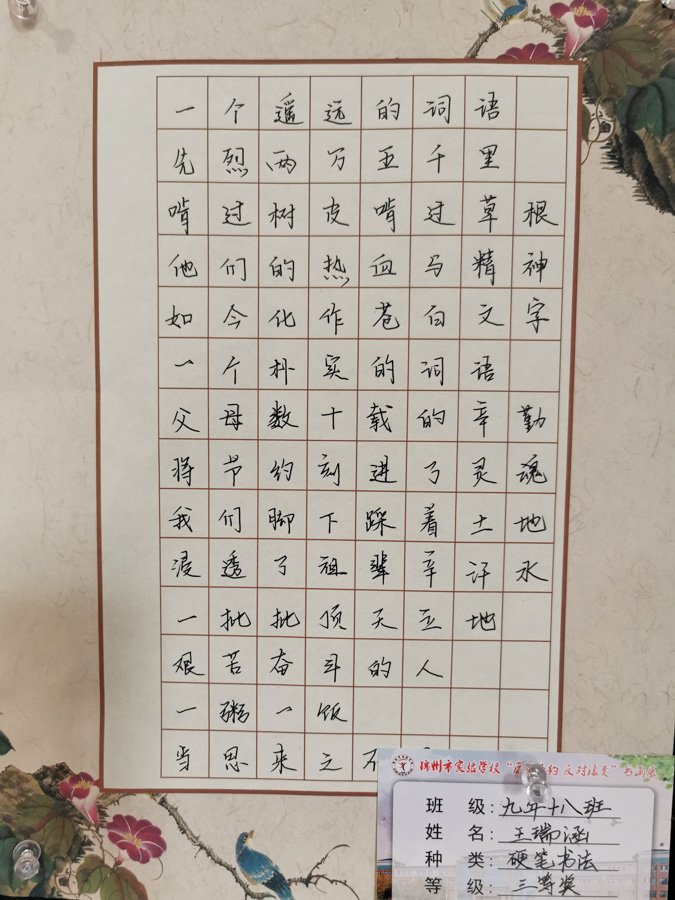 一个遥远的词语
先烈两万五千里
啃过树皮啃过草根
他们的热血与精神
如今化作苍白文字
一个朴实的词语
父母数十载的辛勤
将节约刻进了灵魂
我们脚下踩着土地
浸透了祖辈辛汗水
一批批顶天立地
艰苦奋斗的人
一粥一饭
当思来之不
州市实验学校“厉 约 反对浪费”书画展
班 级：九年十八班
姓 名：王瑞涵
种 类：硬笔书法
等 级：三等奖